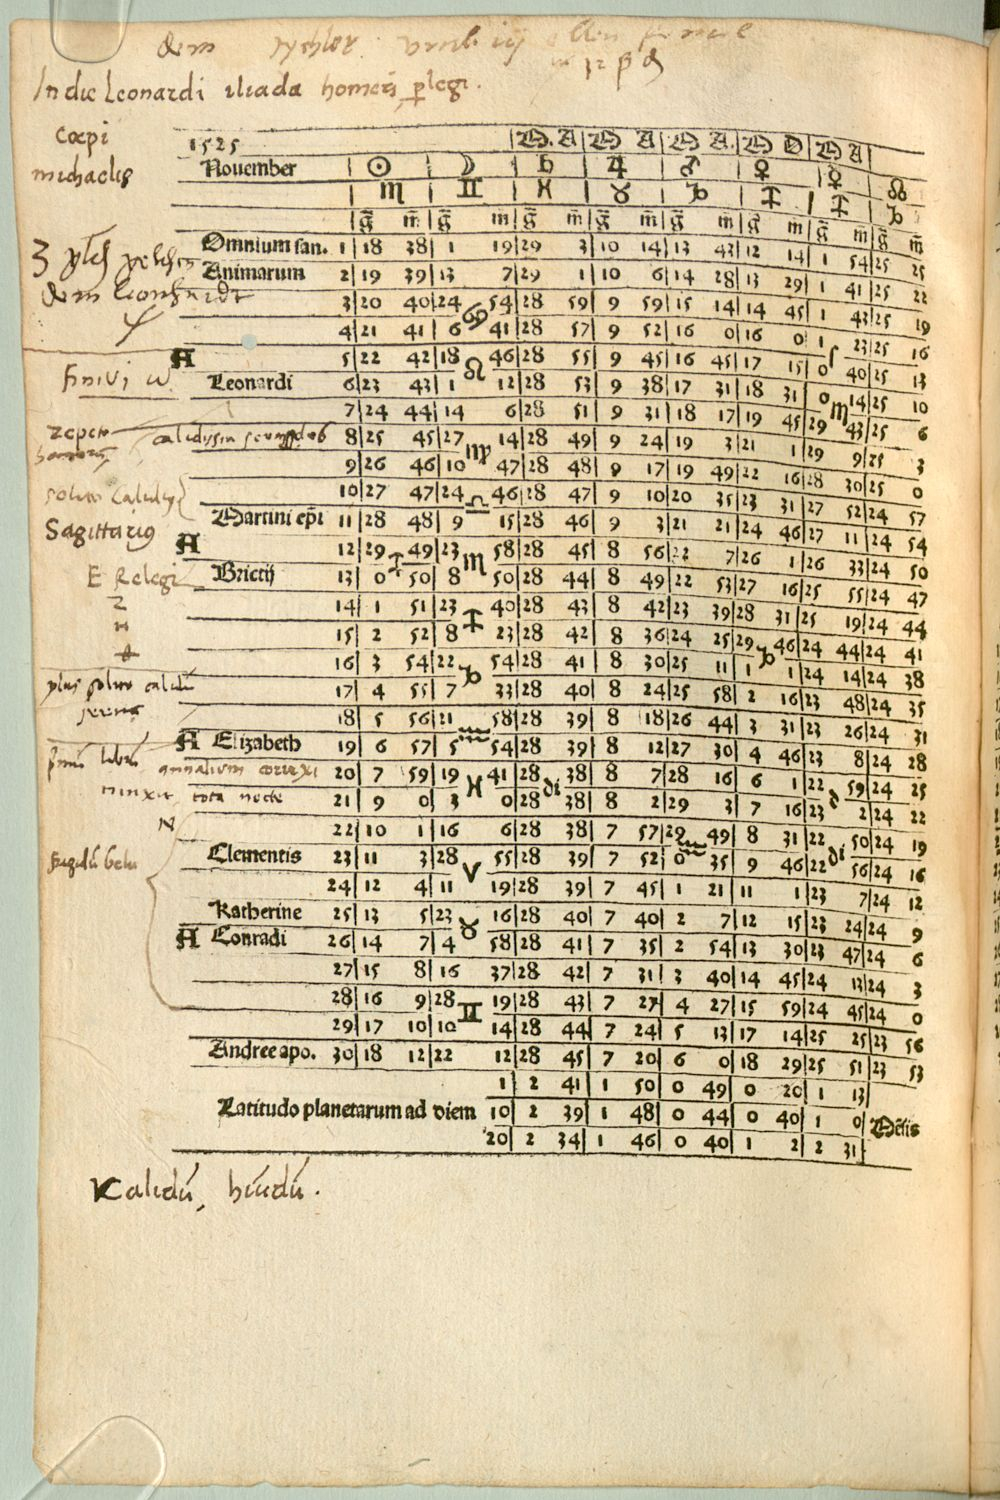 dem
In die Leonardi iliada homeri perlegi.
cœpi
michaelis
1525 | M. A | M A | M A. | M D | M A |
November | ☉ | ☽ | ♄ | ♃ | ♂ | ♀ | ☿ | ☊
♏ | ♊ | ♓ | ♉ | ♑ | ♐ | ♐ | ♑
g̃ m̃ | g̃ m | g̃ m̃ | g̃ m | g̃ m | g m | g̃ m | g̃ m̃
Omnium san. 1 | 18 38 | 1 19 | 29 3 | 10 14 | 13 43 | 12 14 | 1 54 | 25 25
Animarum 2 | 19 39 | 13 7 | 29 1 | 10 6 | 14 28 | 13 29 | 1 41 | 25 22
dem Leonhardt
3 | 20 40 | 24 ♋ 54 | 28 59 | 9 59 | 15 14 | 14 45 | 1 43 | 25 19
4 | 21 41 | 6 41 | 28 57 | 9 52 | 16 0 | 16 0 | 1 23 | 25 16
A 5 | 22 42 | 18 ♌ 46 | 28 55 | 9 45 | 16 45 | 17 15 | 0 40 | 25 13
finivi
Leonardi 6 | 23 43 | 1 12 | 28 53 | 9 38 | 17 31 | 18 31 | 0 ♏ 14 | 25 10
7 | 24 44 | 14 6 | 28 51 | 9 31 | 18 17 | 19 45 | 29 43 | 25 6
8 | 25 45 | 27 ♍ 14 | 28 49 | 9 24 | 19 3 | 21 1 | 29 9 | 25 3
9 | 26 46 | 10 47 | 28 48 | 9 17 | 19 49 | 22 16 | 28 30 | 25 0
10 | 27 47 | 24 ♎ 46 | 28 47 | 9 10 | 20 35 | 23 31 | 27 52 | 24 57
Martini ep̃i 11 | 28 48 | 9 15 | 28 46 | 9 3 | 21 21 | 24 46 | 27 11 | 24 54
Sagittarius
A 12 | 29 ♐ 49 | 23 ♏ 58 | 28 45 | 8 56 | 22 7 | 26 1 | 26 33 | 24 50
E Relegi
Brictij 13 | 0 50 | 8 50 | 28 44 | 8 49 | 22 53 | 27 16 | 25 55 | 24 47
14 | 1 51 | 23 ♐ 40 | 28 43 | 8 42 | 23 39 | 28 31 | 25 19 | 24 44
15 | 2 52 | 8 23 | 28 42 | 8 36 | 24 25 | 29 ♑ 46 | 24 44 | 24 41
16 | 3 54 | 22 ♑ 54 | 28 41 | 8 30 | 25 11 | 1 1 | 24 14 | 24 38
17 | 4 55 | 7 33 | 28 40 | 8 24 | 25 58 | 2 16 | 23 48 | 24 35
18 | 5 56 | 21 ♒ 58 | 28 39 | 8 18 | 26 44 | 3 31 | 23 26 | 24 31
A Elizabeth 19 | 6 57 | 5 54 | 28 39 | 8 12 | 27 30 | 4 46 | 23 8 | 24 28
annalium
20 | 7 59 | 19 ♓ 41 | 28 di 38 | 8 7 | 28 16 | 6 1 | 22 59 | 24 25
ninxit tota nocte
21 | 9 0 | 3 0 | 28 38 | 8 2 | 29 3 | 7 16 | 23 2 | 24 22
22 | 10 1 | 16 6 | 28 38 | 7 57 | 29 ♒ 49 | 8 31 | 22 di 50 | 24 19
Clementis 23 | 11 3 | 28 ♈ 55 | 28 39 | 7 52 | 0 35 | 9 46 | 22 56 | 24 16
24 | 12 4 | 11 19 | 28 39 | 7 45 | 1 21 | 11 1 | 23 7 | 24 12
Katherine 25 | 13 5 | 23 ♉ 16 | 28 40 | 7 40 | 2 7 | 12 15 | 23 24 | 24 9
A Conradi 26 | 14 7 | 4 58 | 28 41 | 7 35 | 2 54 | 13 30 | 23 47 | 24 6
27 | 15 8 | 16 37 | 28 42 | 7 31 | 3 40 | 14 45 | 24 13 | 24 3
28 | 16 9 | 28 ♊ 19 | 28 43 | 7 27 | 4 27 | 15 59 | 24 45 | 24 0
29 | 17 10 | 10 14 | 28 44 | 7 24 | 5 13 | 17 14 | 25 25 | 23 56
Andree apo. 30 | 18 12 | 22 12 | 28 45 | 7 20 | 6 0 | 18 29 | 25 51 | 23 53
1 | 2 41 | 1 50 | 0 49 | 0 20 | 1 13
Latitudo planetarum ad diem 10 | 2 39 | 1 48 | 0 44 | 0 40 | 1 0 | Mẽsis
20 | 2 34 | 1 46 | 0 40 | 1 2 | 2 31
Calidũ, hũidũ.